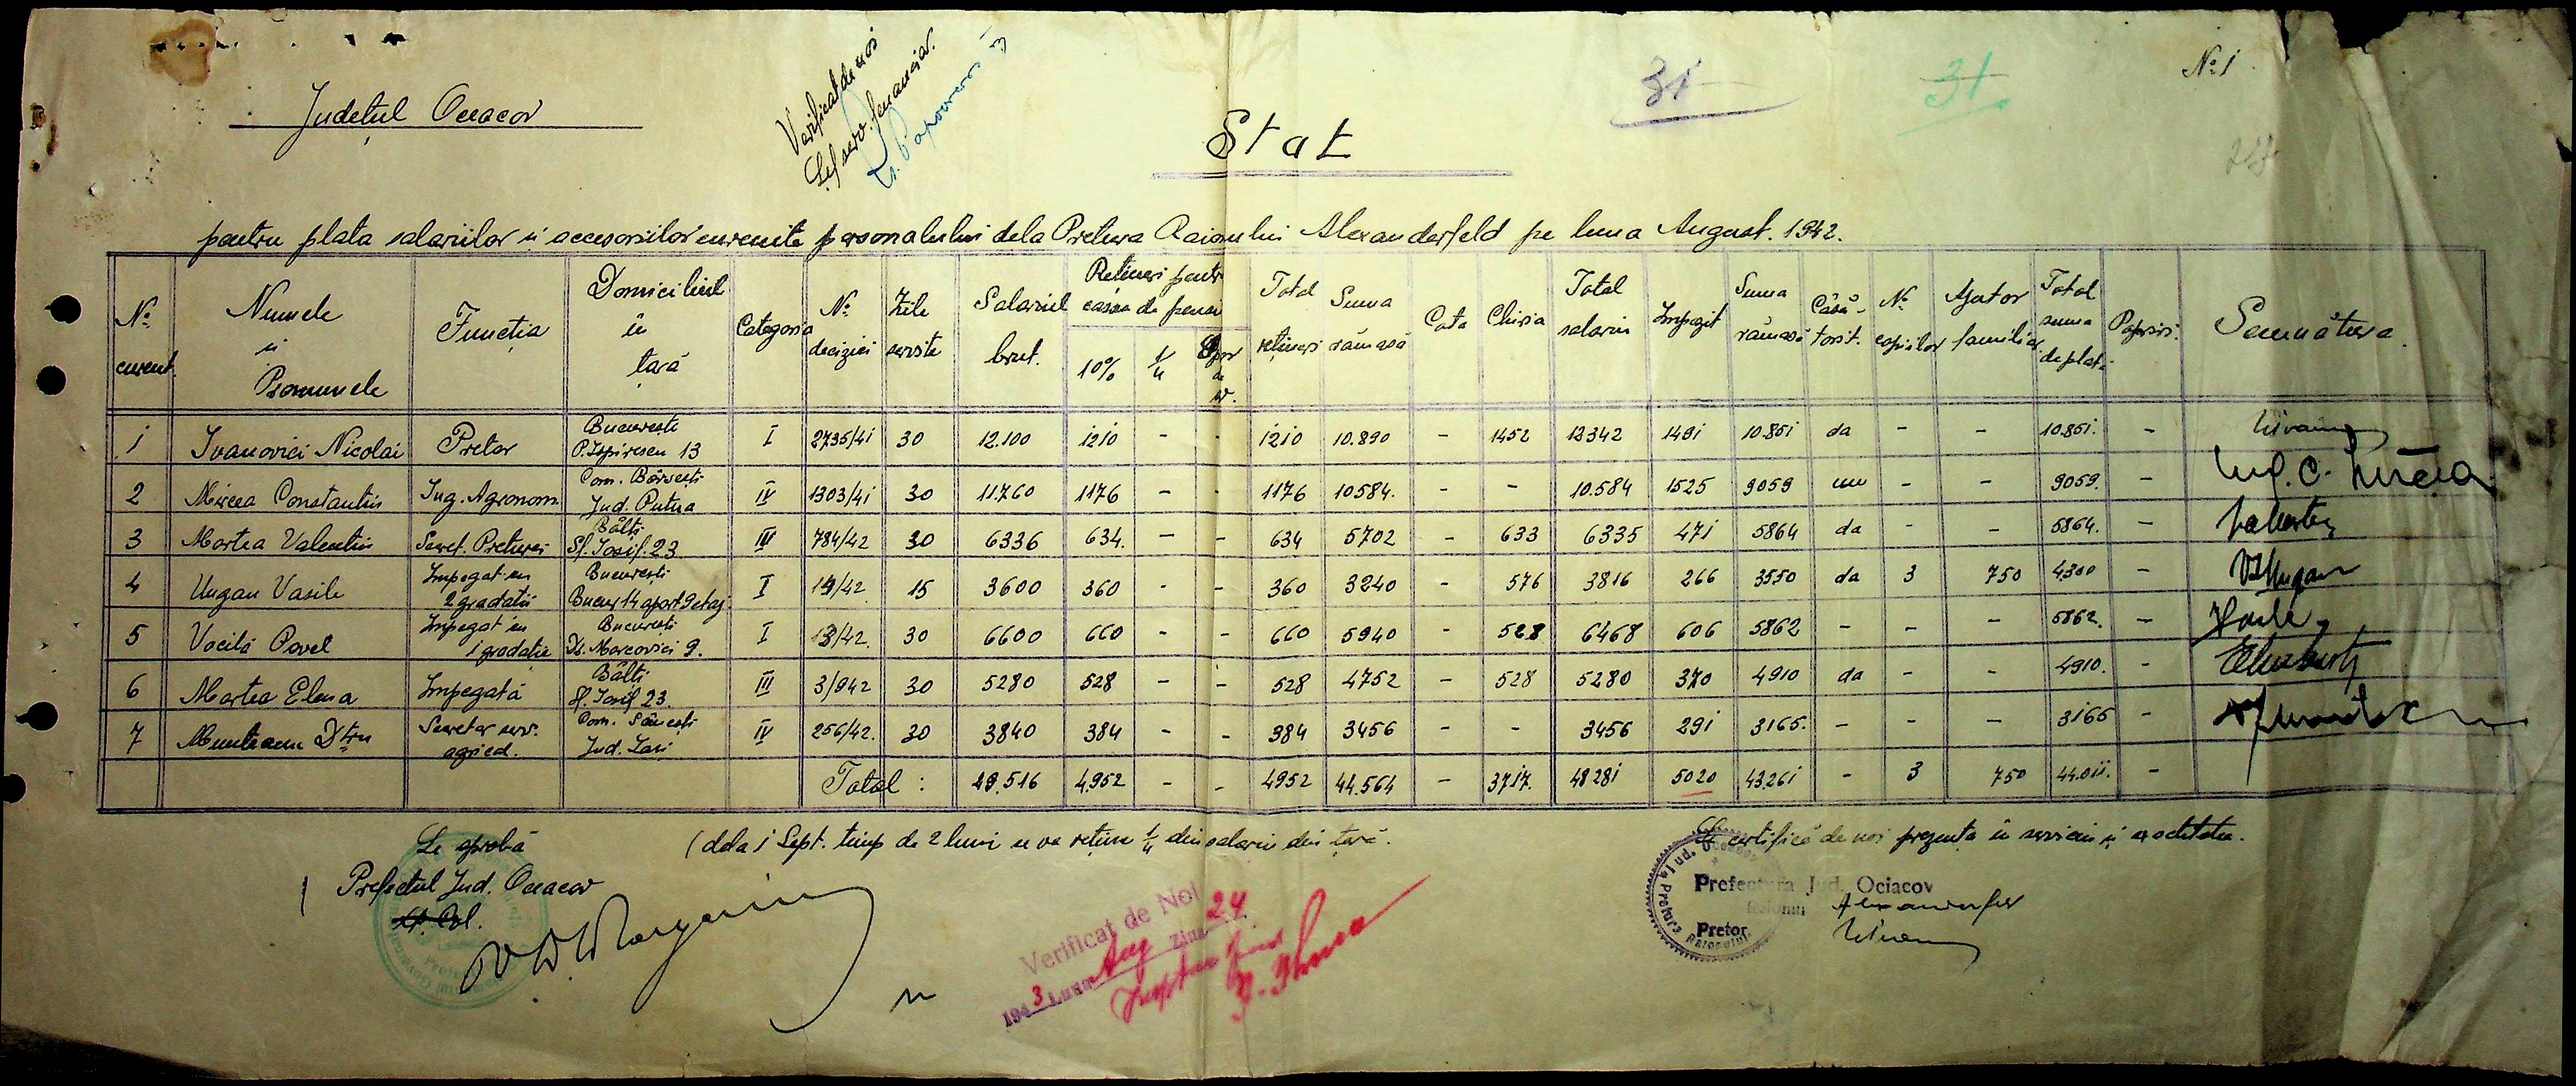 Nº 1
31
31
Județul Oceacov
Verificat de noi
Șef serv. financiar.
Stat
pentru plata salariilor și accesoriilor cuvenite personalului dela Pretura Raionului Alexanderfeld pe luna August. 1942.
Nº curent. Numele și Pronumele Funcția Domiciliul în țară Categoria Nº deciziei Zile servite Salariul brut. Rețineri pentru cassa de pensii 10% 1/4 Total rețineri Suma rămasă Cota Chiria Total salariu Impozit Suma rămasă Căsă-torit. Nº copiilor Ajutor familiar Total suma de plată Popriri. Semnătura.
1 Ivanovici Nicolai Pretor București P. Ispirescu 13 I 2735/41 30 12.100 1210 - - 1210 10.890 - 1452 12342 1491 10.851 da - - 10.851. -
2 Mircea Constantin Ing. Agronom. Com. Bârsești Jud. Putna IV 1303/41 30 11.760 1176 - - 1176 10584. - - 10.584 1525 9059 nu - - 9059. - Ing. C. Mircea
3 Martea Valentin Secret. Preturei Bălți Sf. Iosif. 23 III 784/42 30 6336 634. - - 634 5702 - 633 6335 471 5864 da - - 5864. -
4 Ungan Vasile Impegat cu 2 gradații București Bucur 14 apart 9 etaj I 14/42 15 3600 360 - 360 3240 - 576 3816 266 3550 da 3 750 4.300 - VUngan
5 Vacilă Pavel Impegat cu 1 gradație București Is. Marcovici 9. I 13/42. 30 6600 660 - - 660 5940 - 528 6468 606 5862 - - - 5862. -
6 Martea Elena Impegată Bălți Sf. Iosif 23. III 3/942 30 5280 528 - - 528 4752 - 528 5280 370 4910 da - - 4910. -
7 Munteanu Dtru Secretar serv. agricol. Com. Săcești Jud. Iași IV 256/42. 30 3840 384 - - 384 3456 - - 3456 291 3165. - - - 3165 -
Total : 49.516 4.952 - - 4952 44.564 - 3717. 48281 5020 43.261 - 3 750 44.011. -
Se aprobă
(dela 1 Sept. timp de 2 luni se va reține 1/4 din salariu din țară.
Se certifică de noi prezența în serviciu și exactitatea.
Prefectul Jud. Oceacov
Lt. Col.
Verificat de Noi
1943 Luna Aug Ziua 24
Prefectura Jud. Ociacov
Raionul Alexanderfeld
Pretor